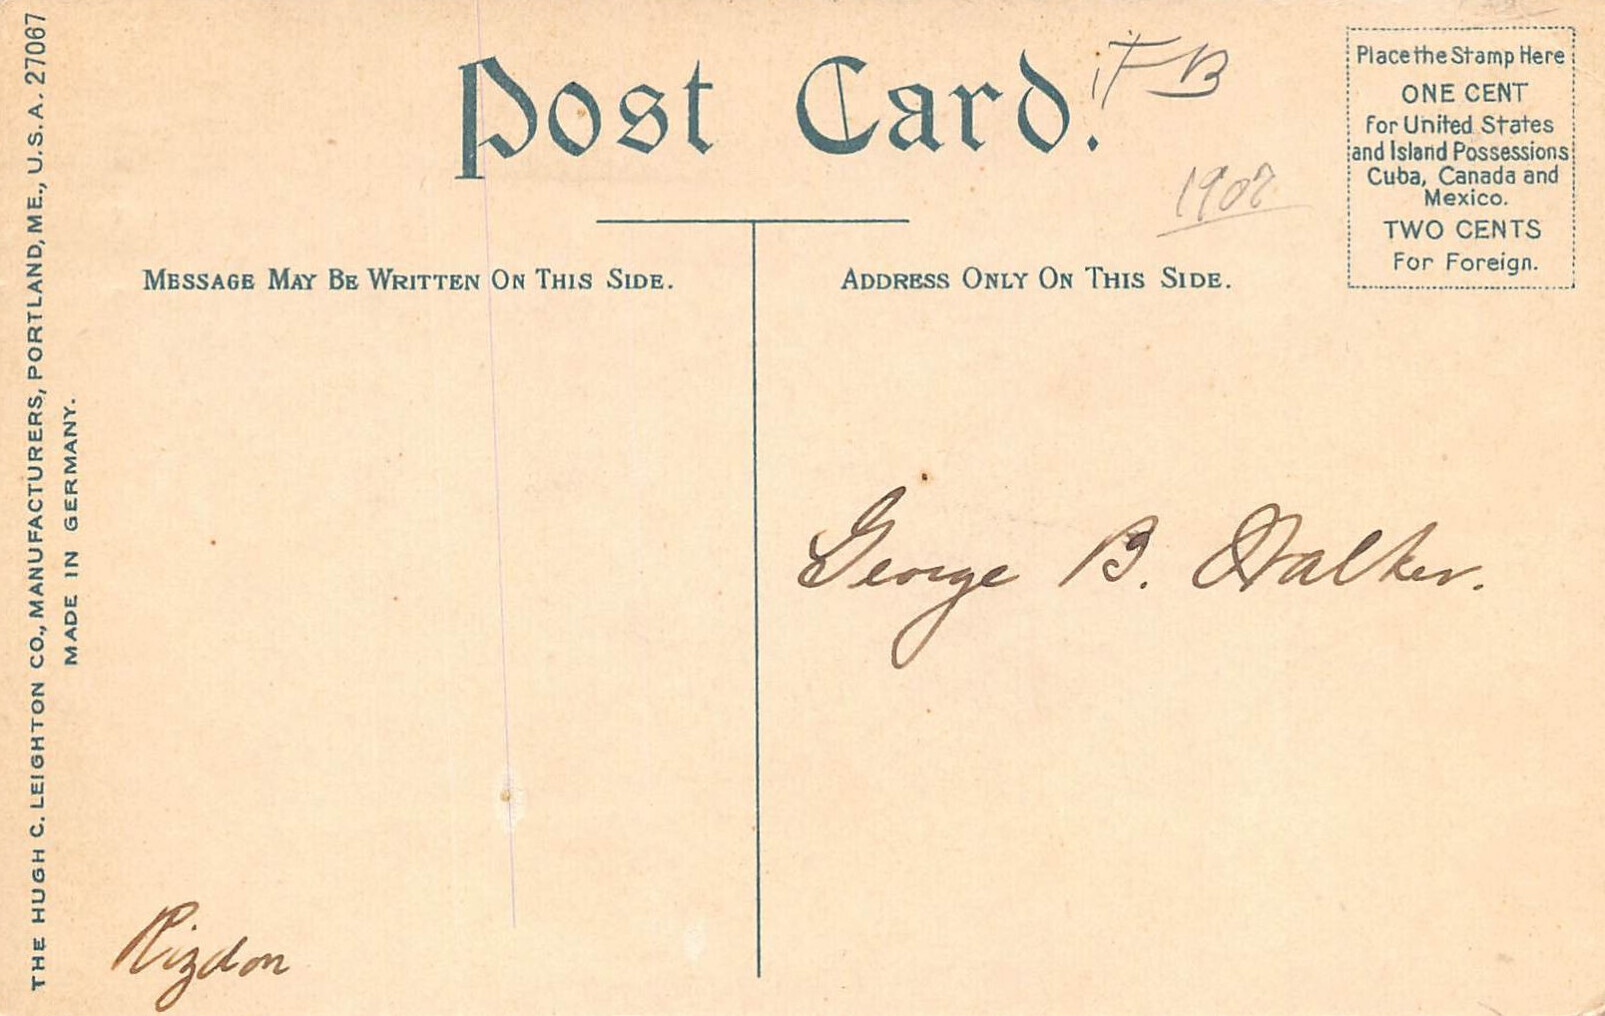 Post Card.
FB
1907
Place the Stamp Here
ONE CENT
For United States
and Island Possessions
Cuba, Canada and
Mexico.
TWO CENTS
For Foreign.
MESSAGE MAY BE WRITTEN ON THIS SIDE.
ADDRESS ONLY ON THIS SIDE.
George B. Walker.
Rizdon
THE HUGH C. LEIGHTON CO., MANUFACTURERS, PORTLAND, ME., U.S.A. 27067
MADE IN GERMANY.